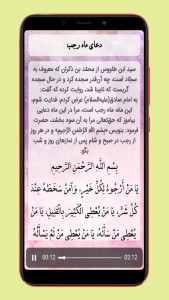 دعای ماه رجب
سید ابن طاووس از محمّد بن ذکران که معروف به
سجّاد است، چه آن‌قدر سجده کرد و در حال سجده
گریست که نابینا شد، روایت کرده که گفت:
به امام صادق(علیه‌السلام) عرض کردم: فدایت شوم،
این ماه، ماه رجب است، مرا در این ماه دعایی
بیاموز که حق‌تعالی مرا به آن سود بخشد، حضرت
فرمود: بنویس «بِسْمِ اللّهِ الرَّحْمنِ الرَّحِیمِ» و در هر روز
از رجب در صبح و شام پس از نمازهای روز و شب
بگو:
بِسْمِ اللّهِ الرَّحْمنِ الرَّحِیمِ
یَا مَنْ أَرْجُوهُ لِکُلِّ خَیْرٍ، وَآمَنُ سَخَطَهُ عِنْدَ
کُلِّ شَرٍّ، یَا مَنْ یُعْطِی الْکَثِیرَ بِالْقَلِیلِ، یَا مَنْ
یُعْطِی مَنْ سَأَلَهُ، یَا مَنْ یُعْطِی مَنْ لَمْ یَسْأَلْهُ
00:12 02:12